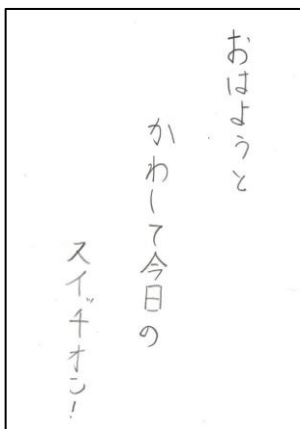 おはようと
かわして今日の
スイッチオン!